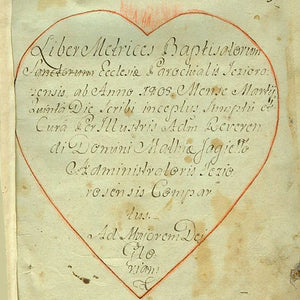 Liber Metrices Baptisatorum
Sanctorum Ecclesiæ Parochialis Jezioro-
sensis, ab Anno 1808 Mense Martij
Quinta Die Scribi inceptus Sumptu et
Cura Per Illustris Adm Reveren
di Domini Mathiæ Jagiełło
Administratoris Jezio
rosensis Compar
tus.
Ad Majorem Dei
Glo
riam